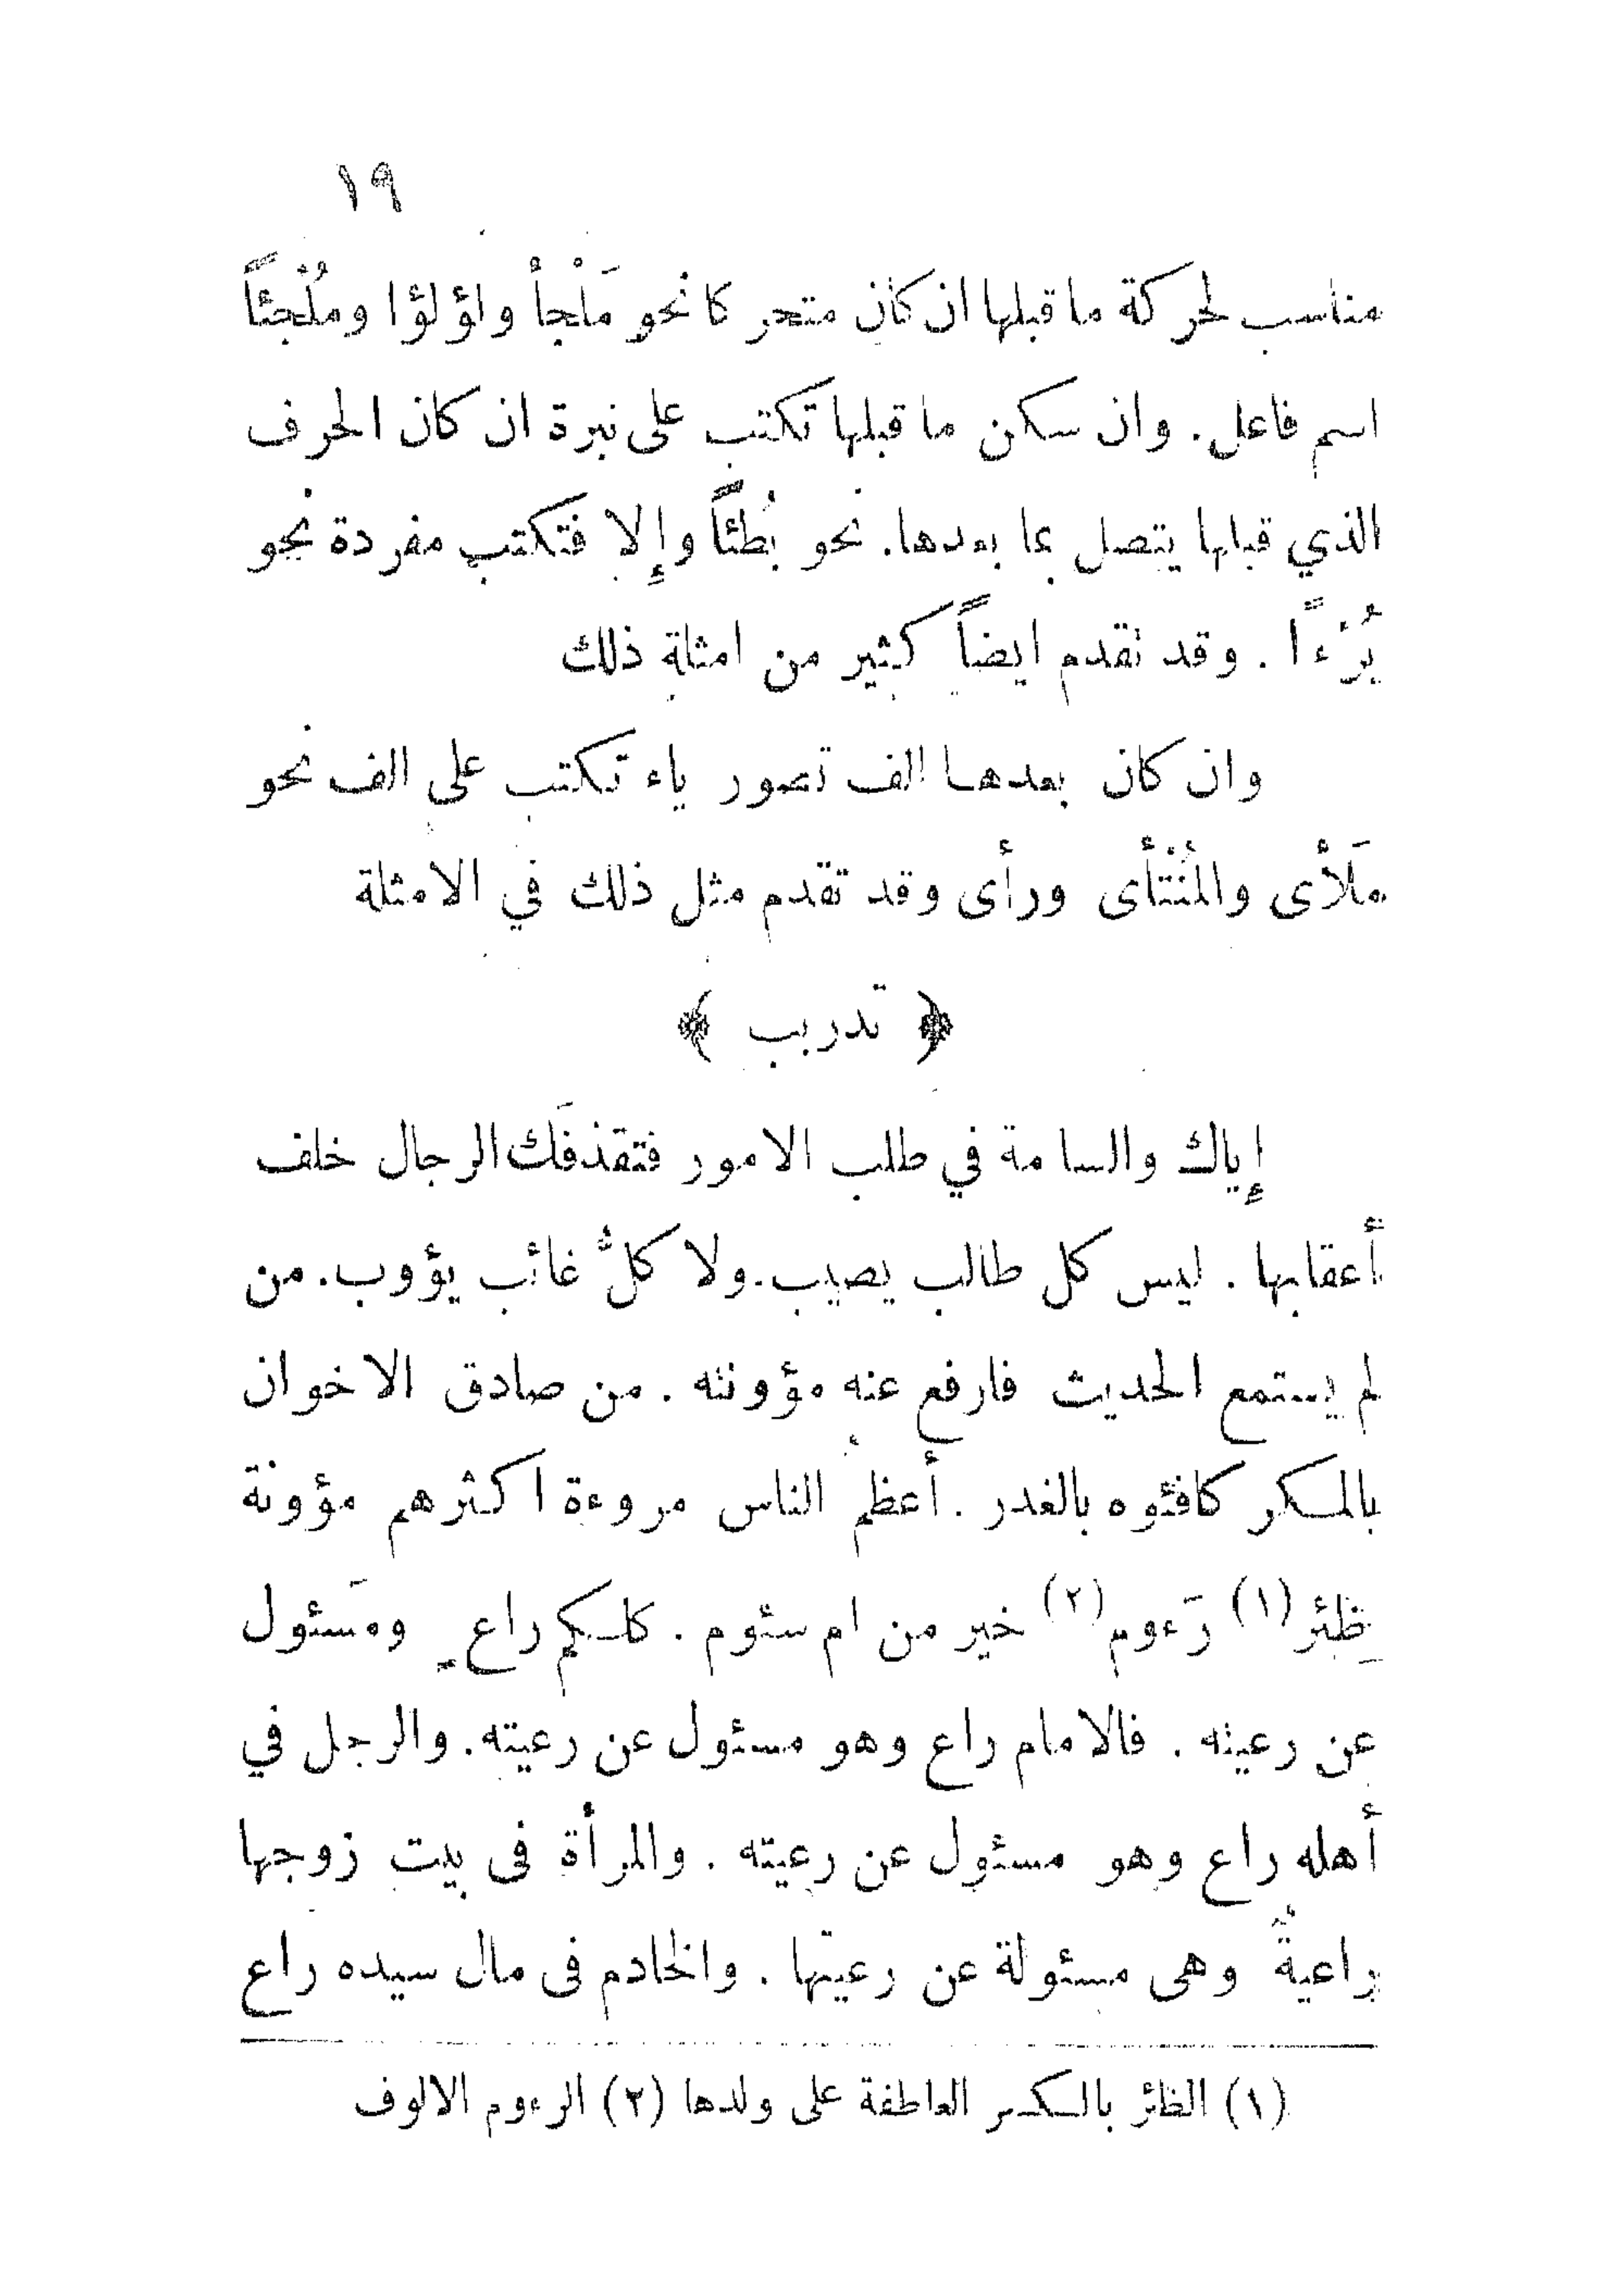 ١٩
مناسب لحركة ما قبلها ان كان متحر كا نحو مَلْجأْ ولؤلؤا ومُلْجئاً
اسم فاعل. وان سكن ما قبلها تكتب على نبرة ان كان الحرف
الذي قبلها يتصل بما بعدها. نحو بُطئاً وإلا فتكتب مفردة نحو
بُرْءًا. وقد تقدم ايضاً كثير من امثلة ذلك
وان كان بعدها الف تصور ياء تكتب على الف نحو
مَلأْى والمُنْتأى ورأى وقد تقدم مثل ذلك في الامثلة
﴿ تدريب ﴾
إياك والسامة في طلب الامور فتقذفَك الرجال خلف
أعقابها. ليس كل طالب يصيب. ولا كلُّ غائب يؤوب. من
لم يستمع الحديث فارفع عنه مؤونته. من صادق الاخوان
بالمكر كافئوه بالغدر. أعظم الناس مروءة اكثرهم مؤونة
ظِئر (١) رَءوم (٢) خير من ام سئوم. كلكم راعٍ ومَسئول
عن رعيته. فالامام راع وهو مسئول عن رعيته. والرجل في
أهله راع وهو مسئول عن رعيته. والمرأة فى بيت زوجها
راعيةٌ وهى مسئولة عن رعيتها. والخادم فى مال سيده راع
(١) الظئر بالكسر العاطفة على ولدها (٢) الرءوم الالوف